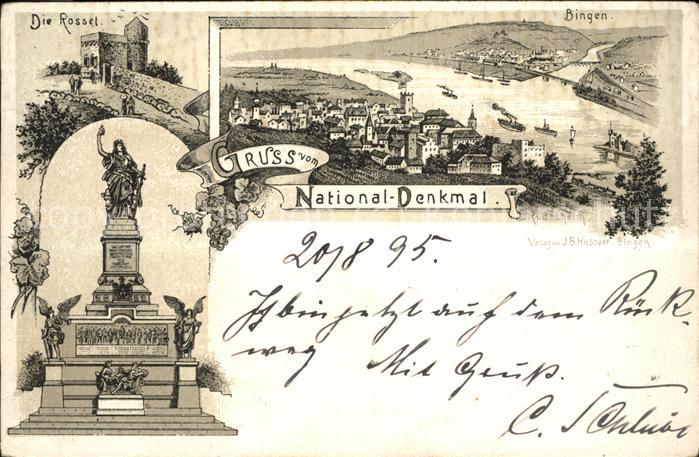 Die Rossel.
Bingen.
Gruss vom
National-Denkmal.
Rüdesheim
Verlag von J.B. Hilsdorf, Bingen
20/8 95.
Ich bin jetzt auf dem Rück-
weg Mit Gruß.
C.